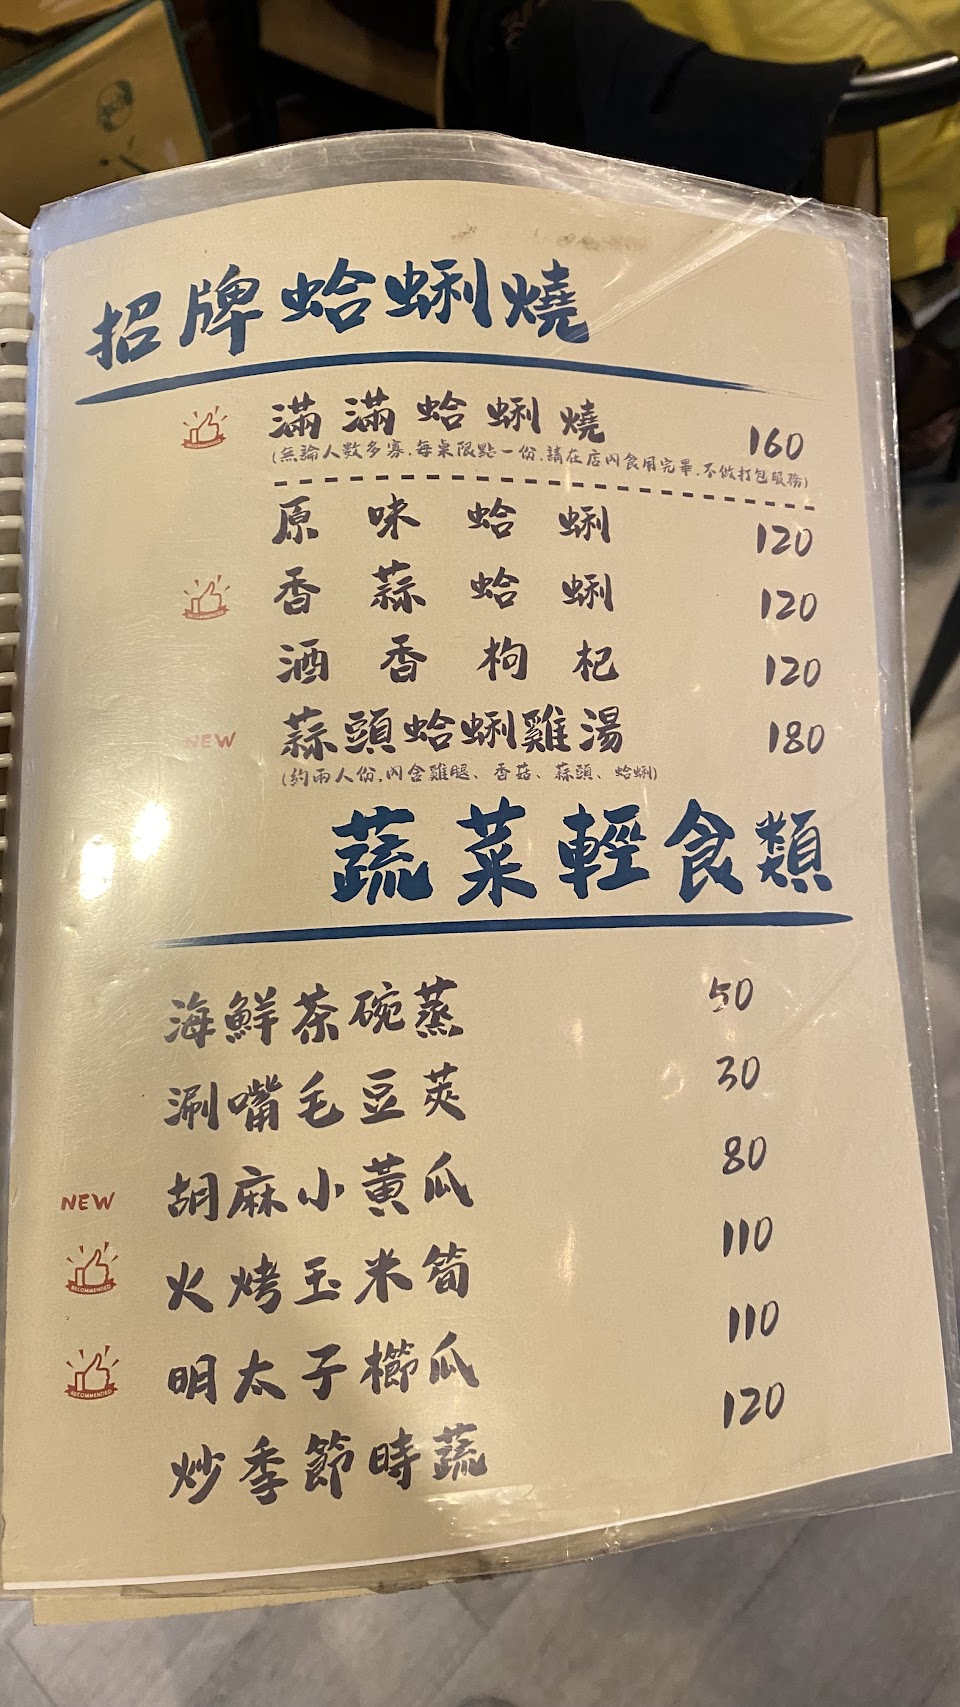 招牌蛤蜊燒
RECOMMENDED 滿滿蛤蜊燒 160
(無論人數多寡.每桌限點一份.請在店內食用完畢.不做打包服務)
原味蛤蜊 120
RECOMMENDED 香蒜蛤蜊 120
酒香枸杞 120
NEW 蒜頭蛤蜊雞湯 180
(約兩人份,內含雞腿、香菇、蒜頭、蛤蜊)
蔬菜輕食類
海鮮茶碗蒸 50
涮嘴毛豆莢 30
NEW 胡麻小黃瓜 80
RECOMMENDED 火烤玉米筍 110
RECOMMENDED 明太子櫛瓜 110
炒季節時蔬 120